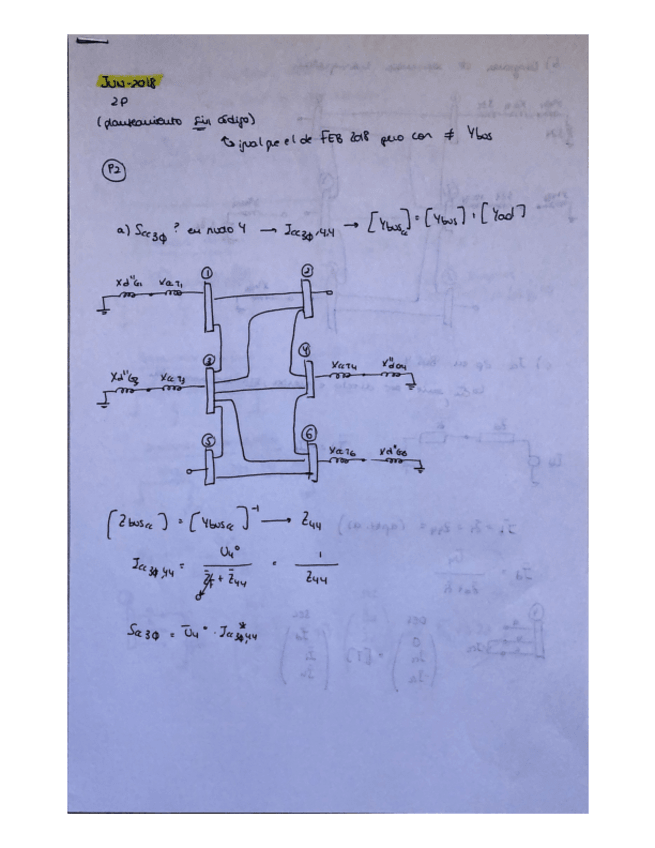 JUN-2018
2P
(planteamiento sin código)
↳ igual que el de FEB 2018 pero con ≠ Ybus
P2
a) Scc3ϕ? en nudo 4 → Icc3ϕ,44 → [Ybuscc] = [Ybus] + [Yad]
1 2
Xd''G1 XccT1
3 4
Xd''G3 XccT3 XccT4 Xd''G4
5 6
XccT6 Xd''G6
[Zbuscc] = [Ybuscc]⁻¹ → Z44
Icc3ϕ,44 = U4° / (Z̄f + Z̄44) = 1 / Z44
Scc3ϕ = Ū4° · Icc3ϕ,44*